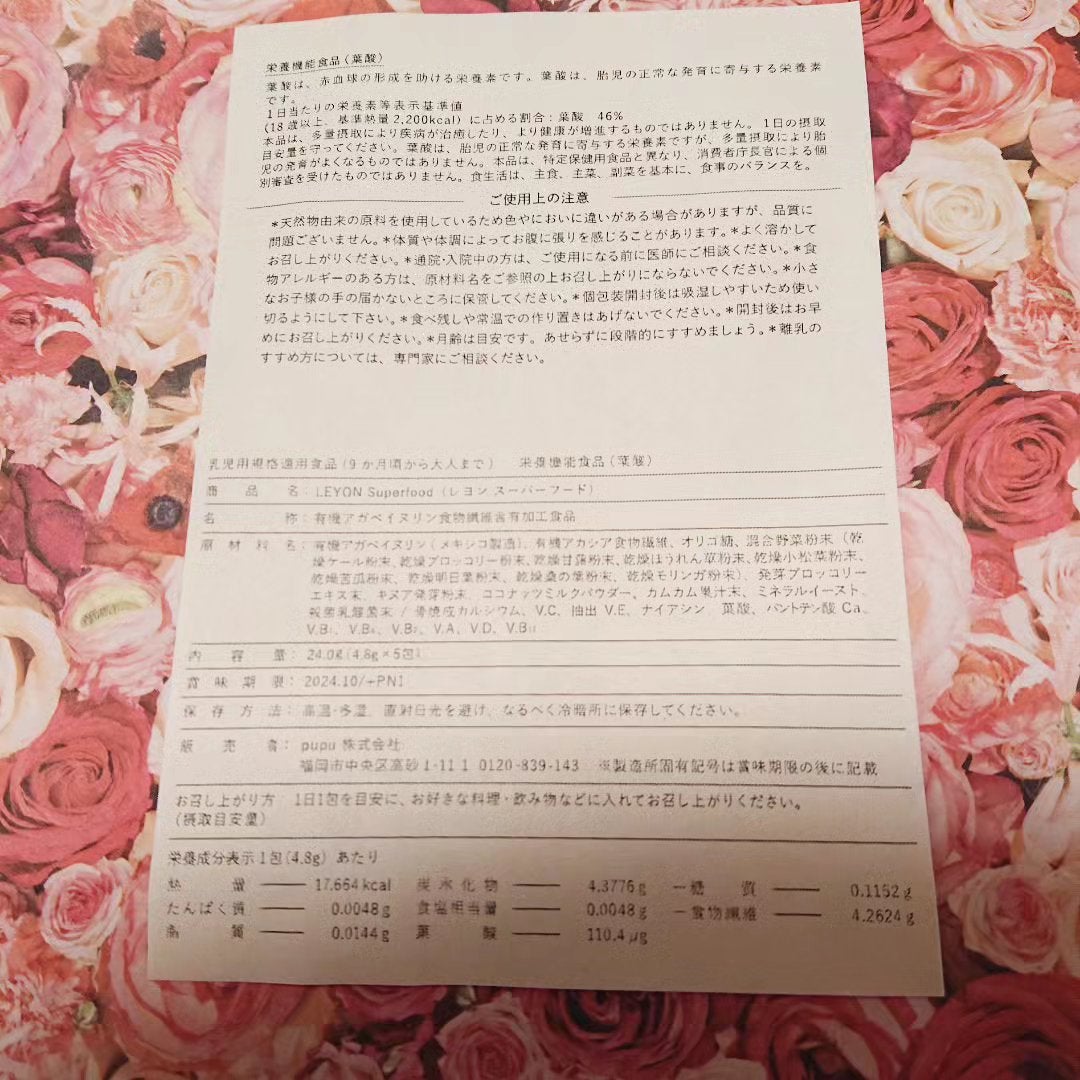 栄養機能食品(葉酸)
葉酸は、赤血球の形成を助ける栄養素です。葉酸は、胎児の正常な発育に寄与する栄養素
です。
1日当たりの栄養素等表示基準値
(18歳以上、基準熱量2,200kcal)に占める割合:葉酸 46%
本品は、多量摂取により疾病が治癒したり、より健康が増進するものではありません。1日の摂取
目安量を守ってください。葉酸は、胎児の正常な発育に寄与する栄養素ですが、多量摂取により胎
児の発育がよくなるものではありません。本品は、特定保健用食品と異なり、消費者庁長官による個
別審査を受けたものではありません。食生活は、主食、主菜、副菜を基本に、食事のバランスを。
ご使用上の注意
*天然物由来の原料を使用しているため色やにおいに違いがある場合がありますが、品質に
問題ございません。*体質や体調によってお腹に張りを感じることがあります。*よく溶かして
お召し上がりください。*通院・入院中の方は、ご使用になる前に医師にご相談ください。*食
物アレルギーのある方は、原材料名をご参照の上お召し上がりにならないでください。*小さ
なお子様の手の届かないところに保管してください。*個包装開封後は吸湿しやすいため使い
切るようにして下さい。*食べ残しや常温での作り置きはあげないでください。*開封後はお早
めにお召し上がりください。*月齢は目安です。あせらずに段階的にすすめましょう。*離乳の
すすめ方については、専門家にご相談ください。
乳児用規格適用食品(9か月頃から大人まで) 栄養機能食品(葉酸)
商品名:LEYON Superfood(レヨン スーパーフード)
名称:有機アガベイヌリン食物繊維含有加工食品
原材料名:有機アガベイヌリン(メキシコ製造)、有機アカシア食物繊維、オリゴ糖、混合野菜粉末(乾
燥ケール粉末、乾燥ブロッコリー粉末、乾燥甘藷粉末、乾燥ほうれん草粉末、乾燥小松菜粉末、
乾燥苦瓜粉末、乾燥明日葉粉末、乾燥桑の葉粉末、乾燥モリンガ粉末)、発芽ブロッコリー
エキス末、キヌア発芽粉末、ココナッツミルクパウダー、カムカム果汁末、ミネラルイースト、
殺菌乳酸菌末/骨焼成カルシウム、V.C、抽出V.E、ナイアシン、葉酸、パントテン酸Ca、
V.B₁、V.B₆、V.B₂、V.A、V.D、V.B₁₂
内容量:24.0g(4.8g×5包)
賞味期限:2024.10/+PN1
保存方法:高温・多湿、直射日光を避け、なるべく冷暗所に保存してください。
販売者:pupu株式会社
福岡市中央区高砂1-11 1 0120-839-143 ※製造所固有記号は賞味期限の後に記載
お召し上がり方 1日1包を目安に、お好きな料理・飲み物などに入れてお召し上がりください。
(摂取目安量)
栄養成分表示1包(4.8g)あたり
熱量 ── 17.664kcal 炭水化物 ── 4.3776g ー糖質 ── 0.1152g
たんぱく質 ── 0.0048g 食塩相当量 ── 0.0048g ー食物繊維 ── 4.2624g
脂質 ── 0.0144g 葉酸 ── 110.4μg